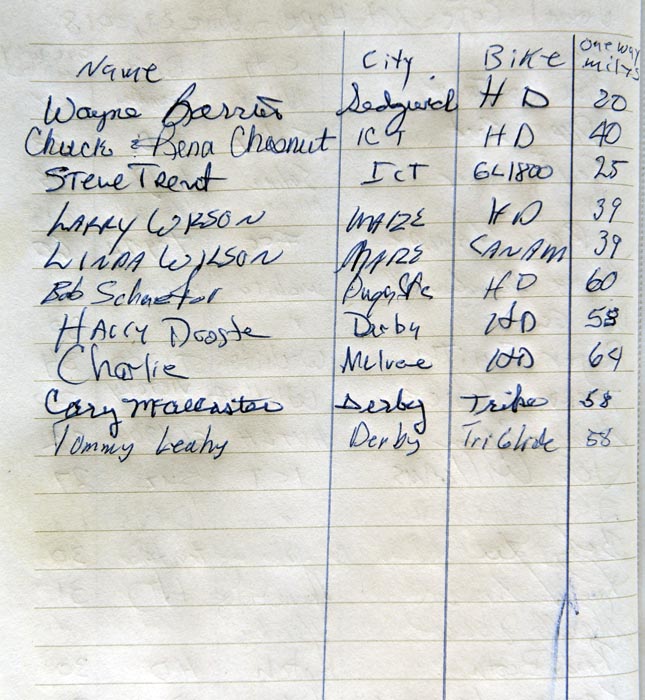 Name City Bike one way miles
Wayne Sedgwick HD 20
Chuck & Rena Chesnut ICT HD 40
Steve Trent ICT GL1800 25
LARRY WILSON MAIZE HD 39
LINDA WILSON MAIZE CANAM 39
Bob Schaefer Augusta HD 60
Harry Droste Derby HD 58
Charlie Mulvane HD 64
Cary Derby Trike 58
Tommy Leahy Derby TriGlide 58